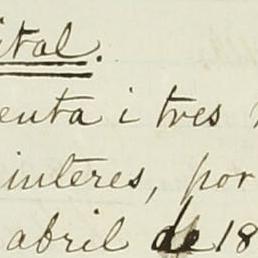 ital.
enta i tres
interes, por
abril de 18